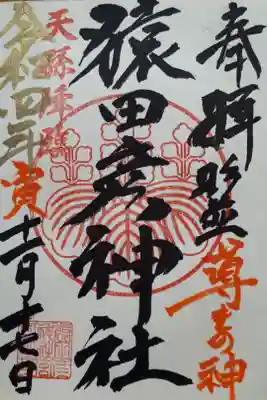 奉拝
導きの神
猿田彦神社
天孫降臨
令和四年
寅
十二月十七日